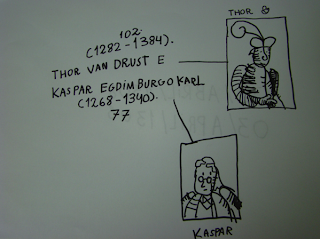 102.
(1282-1384).
THOR VAN DRUST E
KASPAR EGDIMBURGO KARL
(1268-1340).
77
THOR
KASPAR